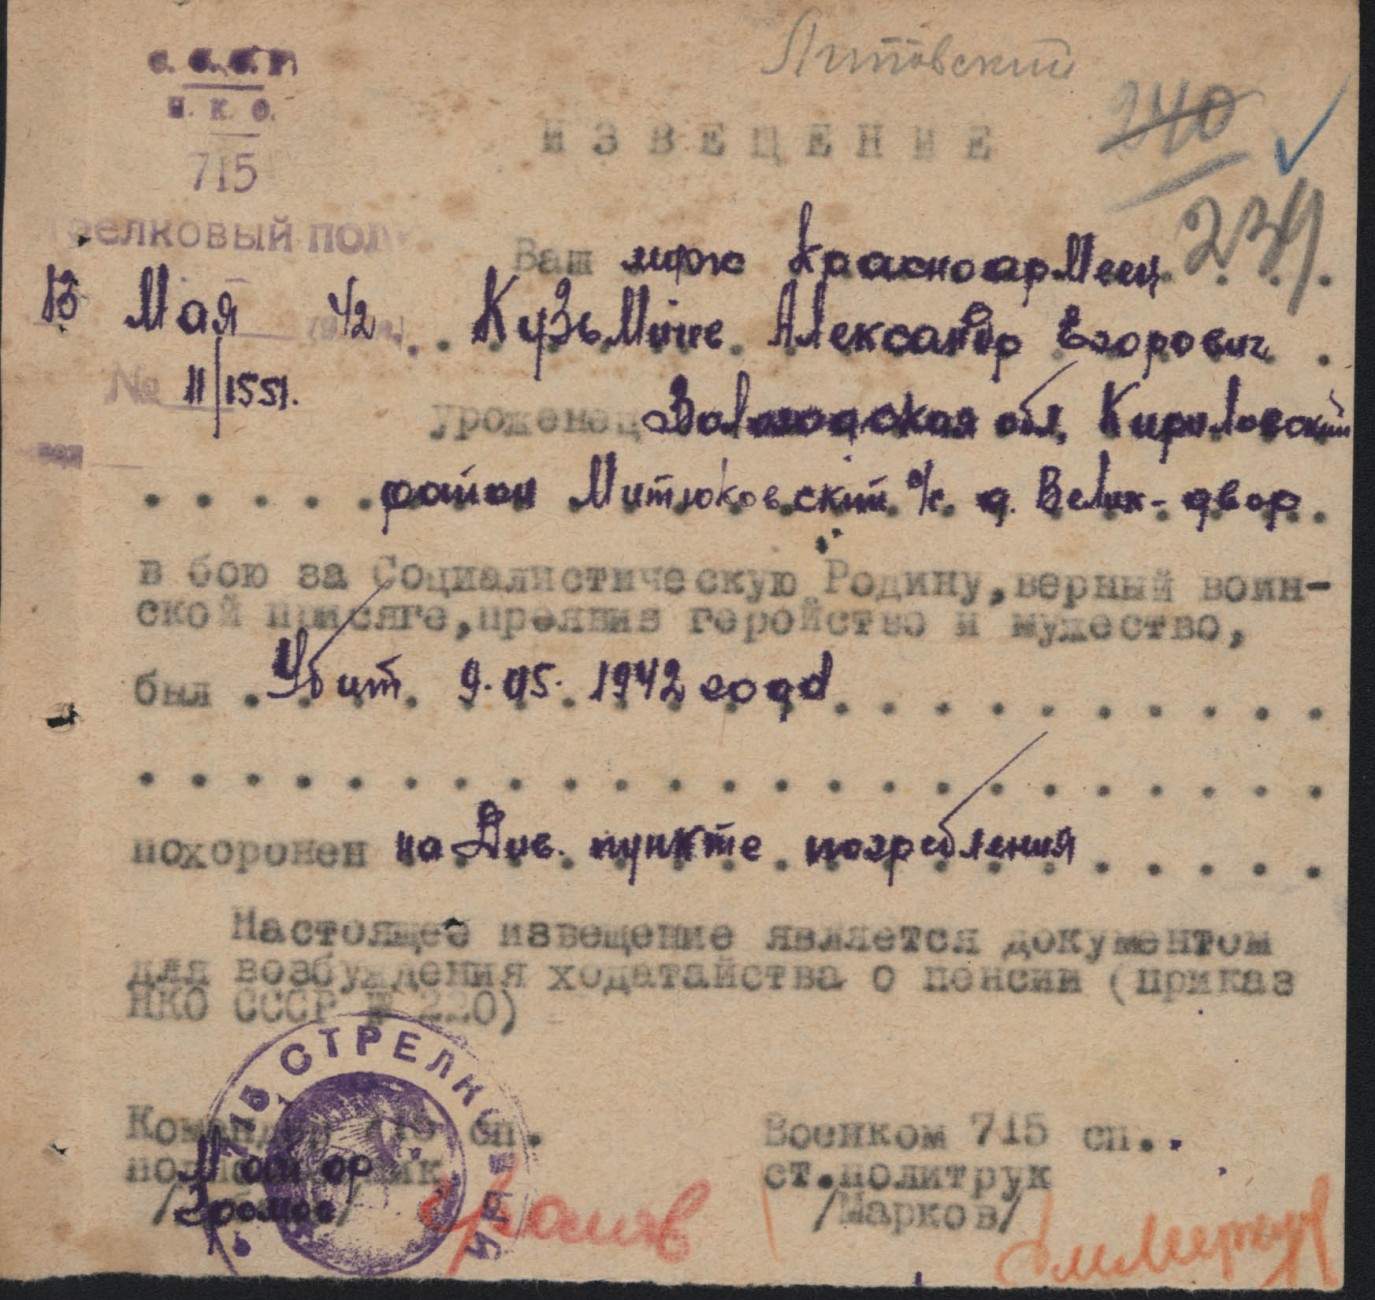 Литовский
С. С. С. Р.
Н. К. О.
240
ИЗВЕЩЕНИЕ
715
239.
Стрелковый полк
Ваш муж Красноармеец
13 Мая 1942 г. Кузьмичев Александр Егорович
№ 11/1551.
уроженец Вологодская обл. Кириловский
район Митюковский с/с. д. Велик-двор
в бою за Социалистическую Родину, верный воин-
ской присяге, проявив геройство и мужество,
был Убит 9.05.1942 года
похоронен на Див. пункте погребления
Настоящее извещение является документом
для возбуждения ходатайства о пенсии (приказ
НКО СССР № 220)
715 СТРЕЛКОВЫЙ
Командир 715 сп.
Военком 715 сп.
Майор
ст.политрук
/Марков/